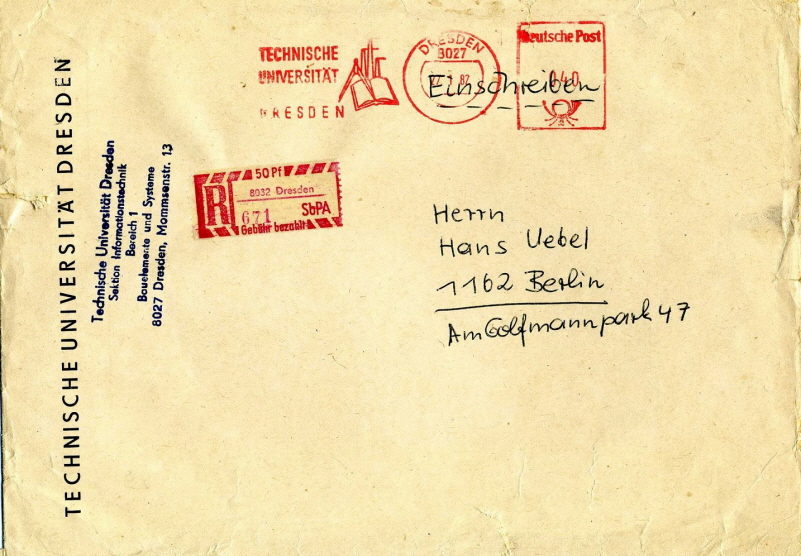 TECHNISCHE UNIVERSITÄT DRESDEN
Technische Universität Dresden
Sektion Informationstechnik
Bereich 1
Bauelemente und Systeme
8027 Dresden, Mommsenstr. 13
TECHNISCHE
UNIVERSITÄT
DRESDEN
DRESDEN
8027
Deutsche Post
040
Einschreiben
50 Pf
R
8032 Dresden
671
SbPA
Gebühr bezahlt
Herrn
Hans Uebel
1162 Berlin
Am Golfmannpark 47